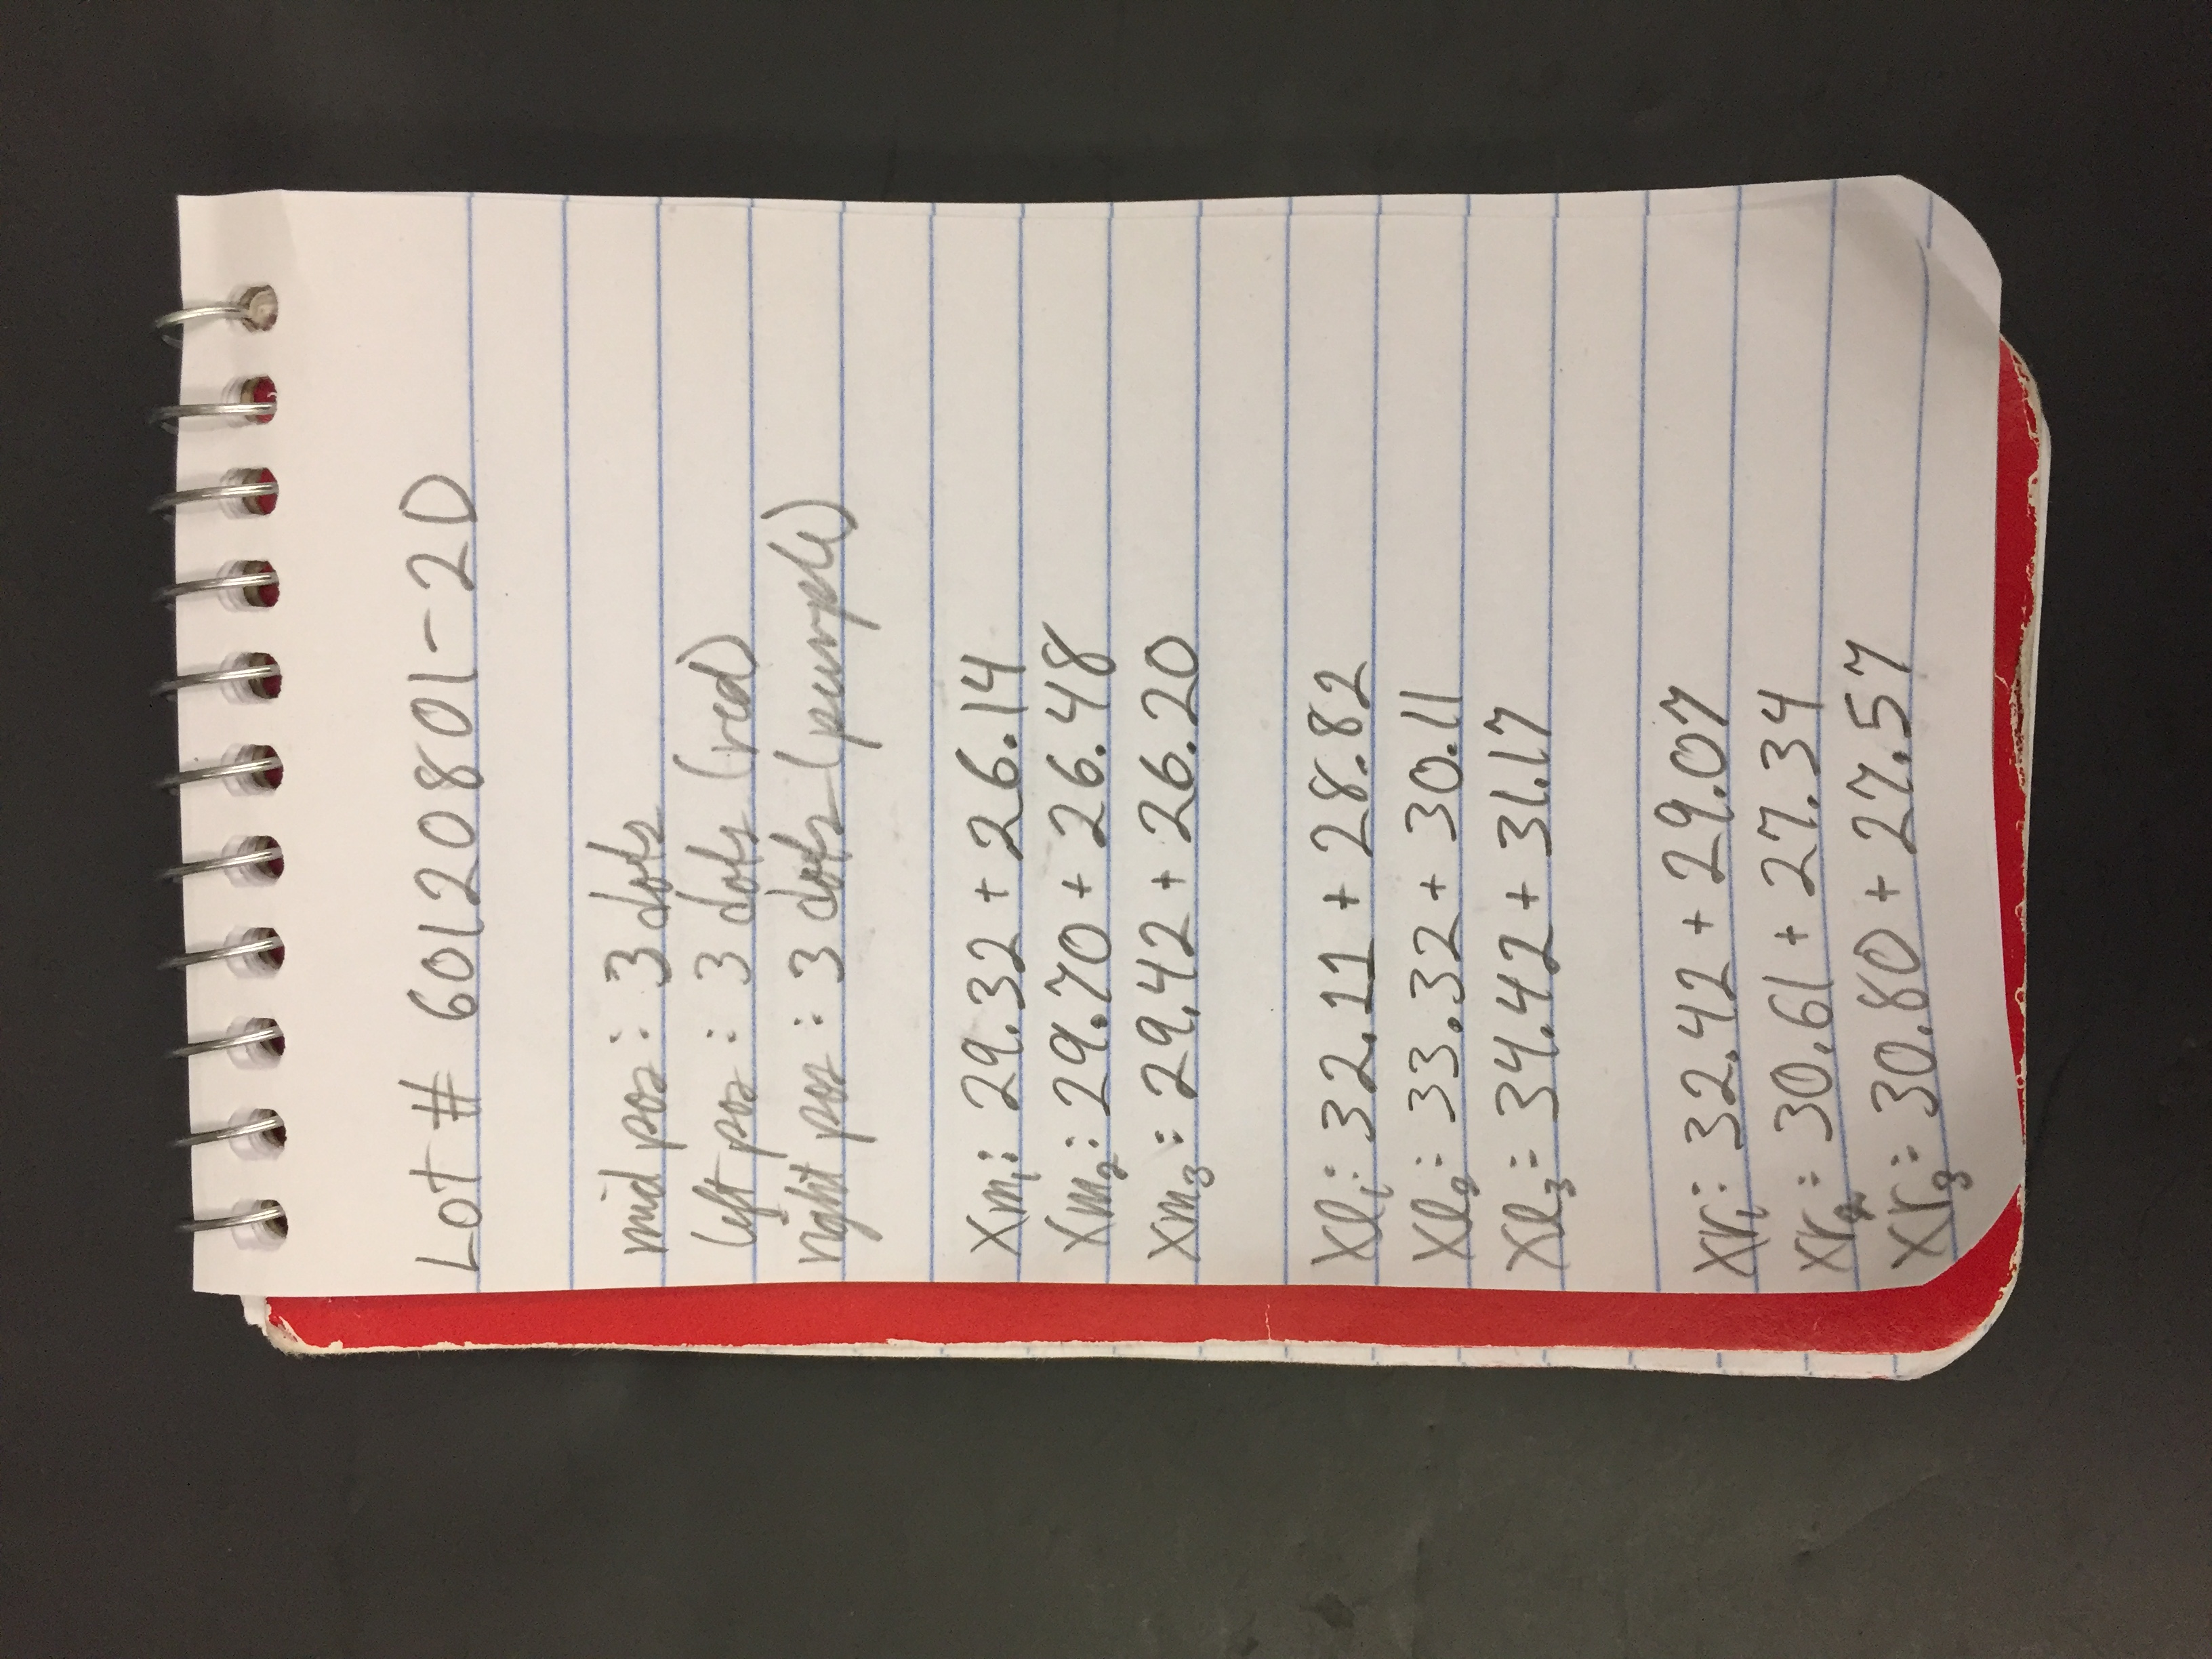 Lot # 60120801-2D
mid pos: 3 dots
left pos: 3 dots (red)
right pos: 3 dots (purple)
Xm₁: 29.32 + 26.14
Xm₂: 29.70 + 26.48
Xm₃: 29.42 + 26.20
Xl₁: 32.11 + 28.82
Xl₂: 33.32 + 30.11
Xl₃: 34.42 + 31.17
Xr₁: 32.42 + 29.07
Xr₂: 30.61 + 27.34
Xr₃: 30.80 + 27.57